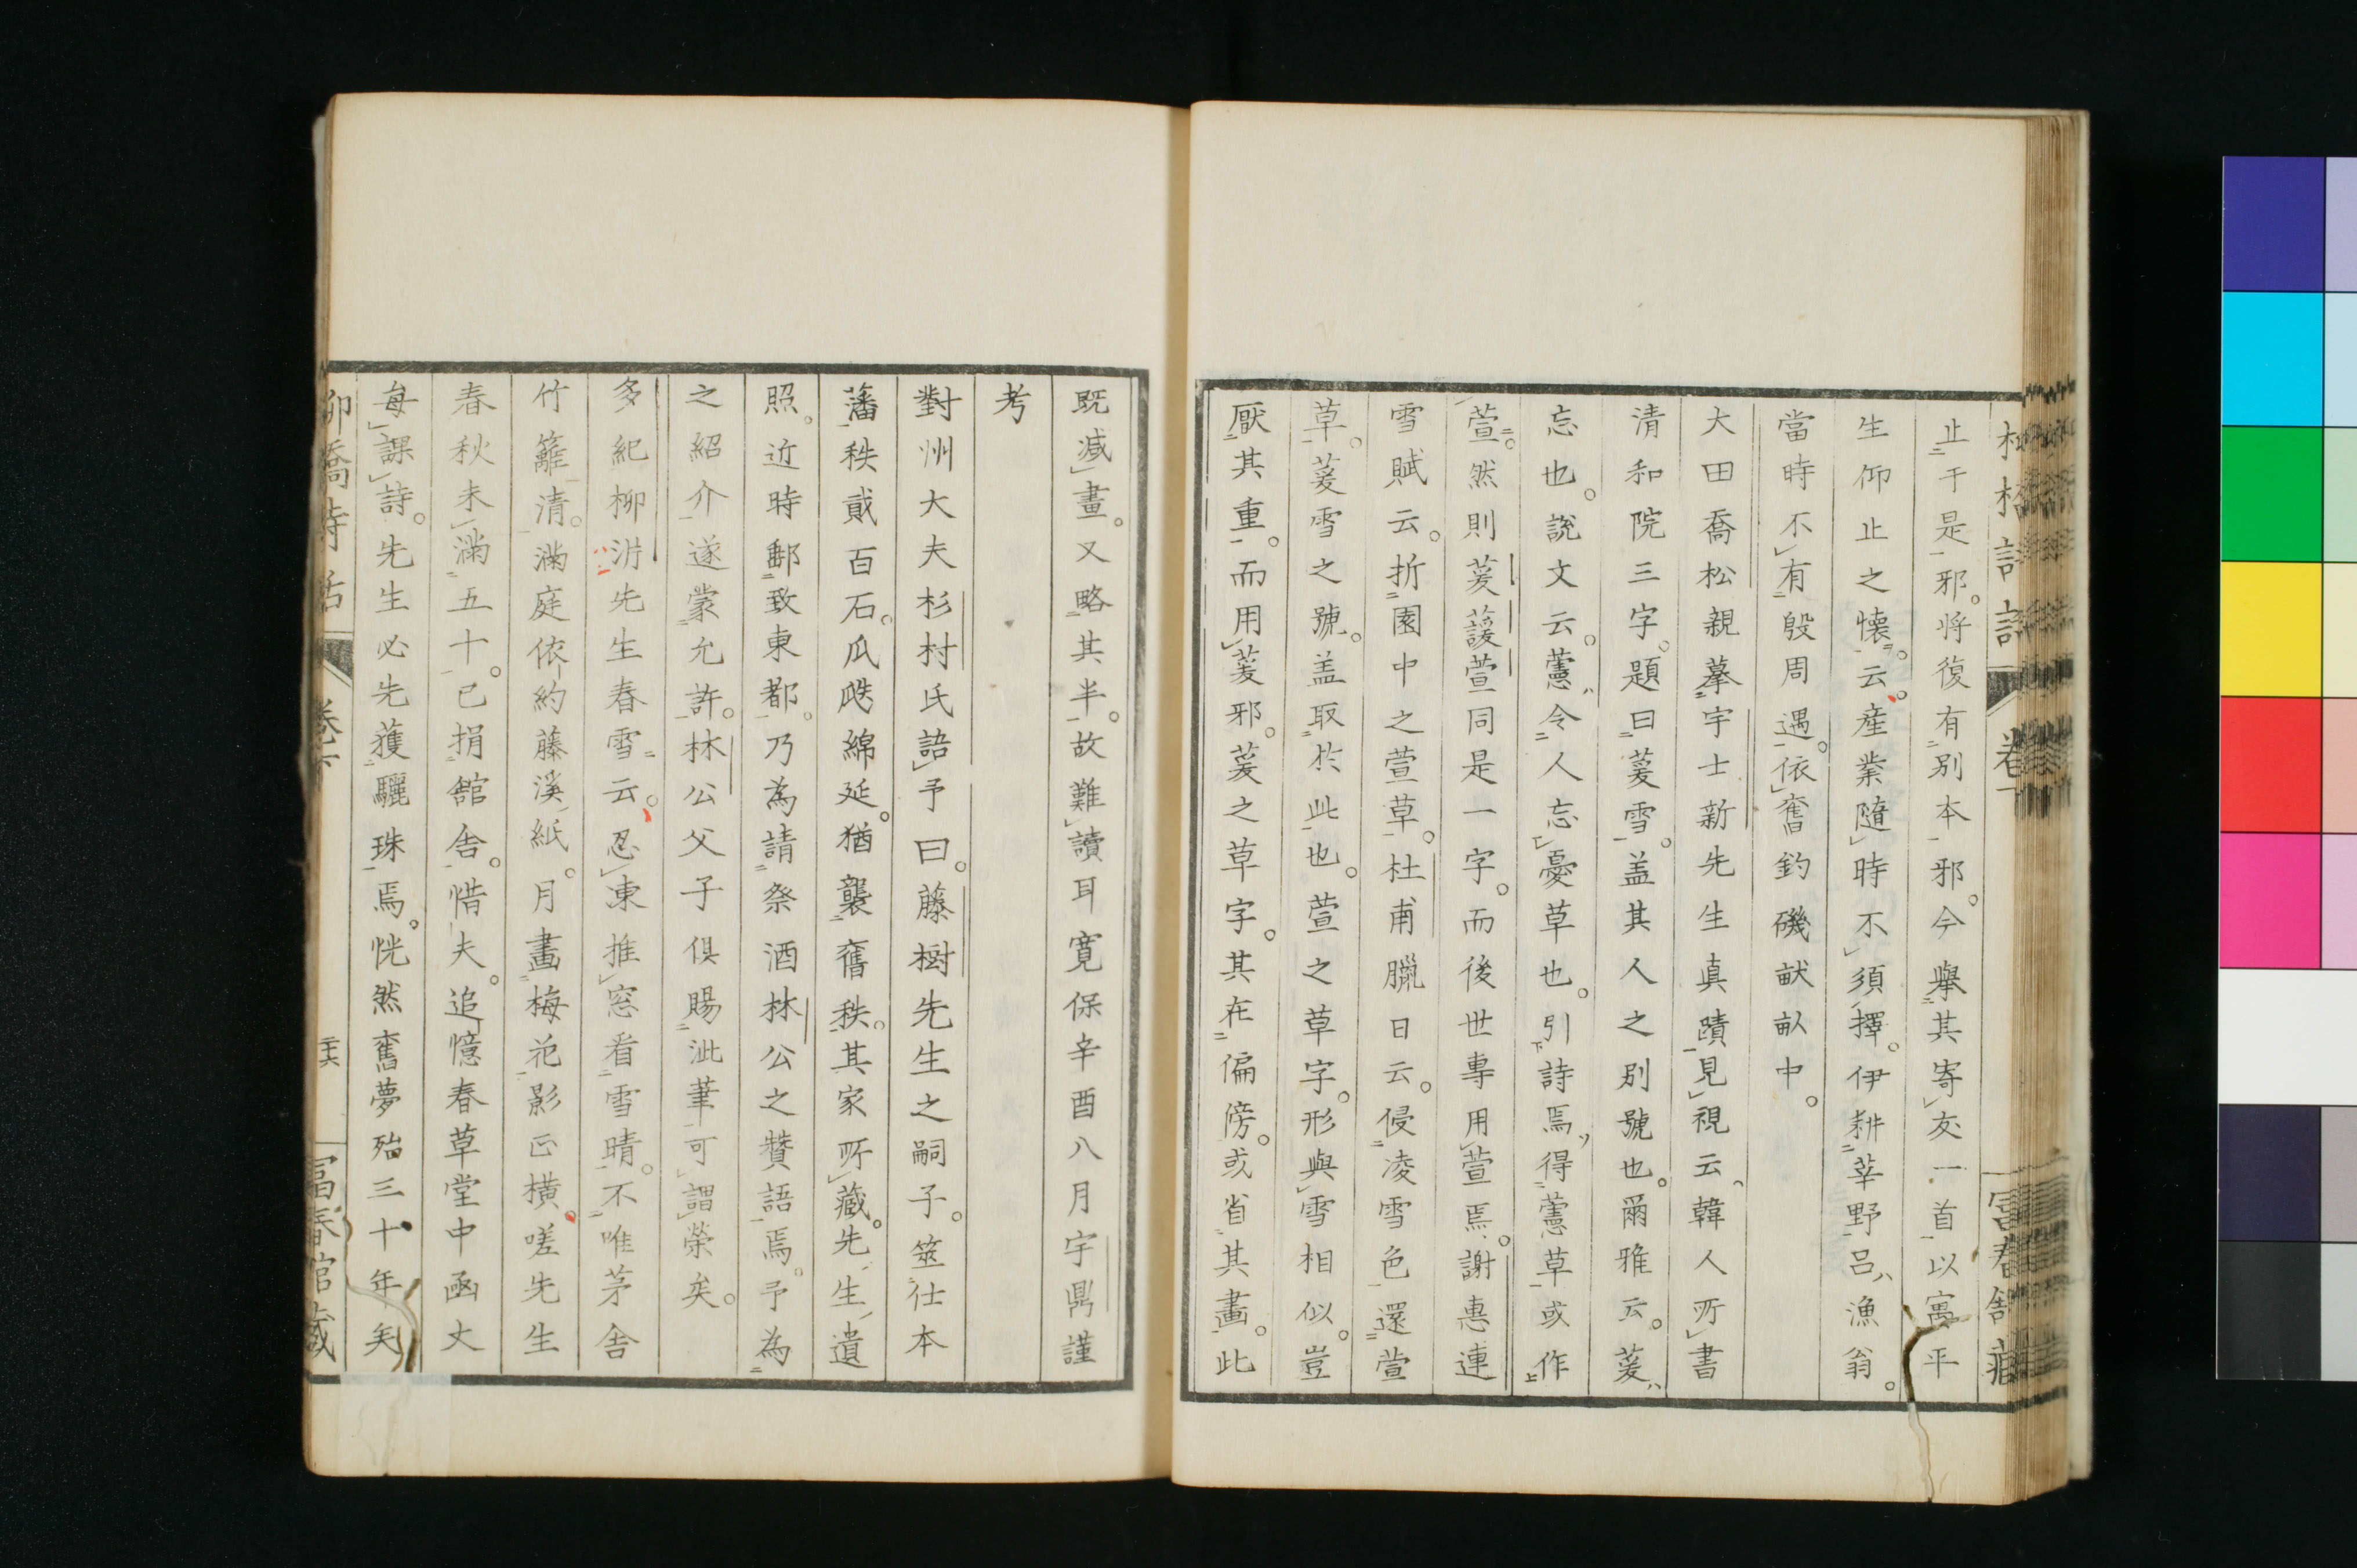 止于是邪。将復有別本邪。今擧其寄友一首以寓平
生仰止之懐。云。産業隨時不須擇。伊耕莘野呂漁翁。
當時不有殷周遇。依舊釣磯畎畝中。
大田喬松親摹宇士新先生真蹟見視云韓人所書
清和院三字。題曰萲雪。盖其人之別號也。爾雅云。萲
忘也。說文云。藼令人忘憂草也。引詩焉得藼草或作
萱。然則萲蘐萱同是一字。而後世專用萱焉。謝惠連
雪賦云。折園中之萱草。杜甫臘日云。侵凌雪色還萱
草。萲雪之號。盖取於此也。萱之草字。形與雪相似。豈
厭其重。而用萲邪。萲之草字。其在偏傍。或省其畫。此
卷下
既減畫。又略其半。故難讀耳寛保辛酉八月宇鼎謹
考
對州大夫杉村氏語予曰。藤樹先生之嗣子。筮仕本
藩秩貮百石。瓜瓞綿延。猶襲舊秩。其家所藏。先生遺
照。近時郵致東都。乃為請祭酒林公之贊語焉。予為
之紹介遂蒙允許。林公父子倶賜泚筆可謂榮矣。
多紀柳沜先生春雪云。忍凍推窓看雪晴。不唯茅舎
竹籬清。滿庭依約藤溪紙。月畫梅花影正横。嗟先生
春秋未滿五十。已捐舘舎。惜夫。追憶春草堂中函丈
每課詩。先生必先獲驪珠焉。恍然舊夢殆三十年矣
柳橋詩話
卷下
富春館藏